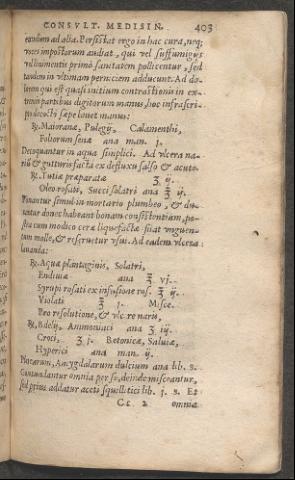 CONSVLT. MEDISIN. 403
eundem ad alba. Persistat ergo in hac cura, neq;
voces impostorum audiat, qui vel suffumigijs
vel linimentis primò sanitatem pollicentur, sed
tandem in vltimam perniciem adducunt. Ad do-
lorem qui est quasi initium contractionis in ex-
tremis partibus digitorum manus, hoc infrascri-
pto decocto sæpe lauet manus:
℞. Maioranæ, Pulegij, Calamenthi,
Foliorum senæ ana man. j.
Decoquantur in aqua simplici. Ad vlcera na-
riũ & gutturis facta ex defluxu salso & acuto.
℞. Tutiæ præparatæ ʒ. ij.
Oleo rosati, Succi solatri ana ℥ ij.
Ponantur simul in mortario plumbeo, & du-
cantur donec habeant bonam consistentiam, po-
stea cum modico ceræ liquefactæ fiat vnguen-
tum molle, & reseruetur vsui. Ad eadem vlcera
lauanda:
℞. Aquæ plantaginis, Solatri,
Endiuiæ ana ℥ vj.
Syrupi rosati ex infusione ros. ℥ ij.
Violati ℥ j. Misce.
Pro resolutione, & vlc. re naris,
℞. Bdelij, Ammoniaci ana ʒ. iij.
Croci, ʒ j. Betonicæ, Saluiæ,
Hyperici ana man. ij.
Florum, Amygdalarum dulcium ana lib. s.
Contundantur omnia per se, deinde misceantur,
sed prius addatur aceti squillitici lib. j. s. Et
Cc 2 omnia